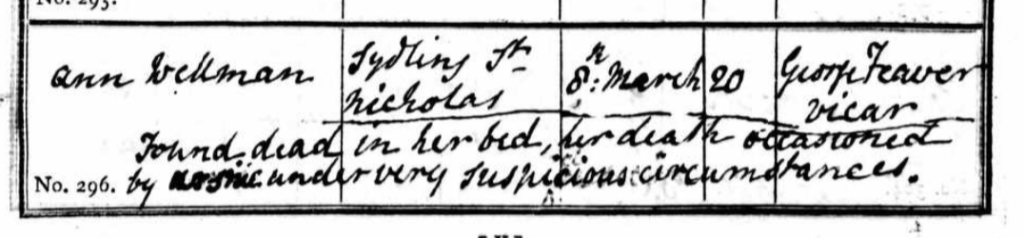 No. 295.
Ann Wellman Sydling St Nicholas 8th: March 20 George Feaver vicar
Found dead in her bed, her death occasioned
No. 296. by arsnic under very suspicious circumstances.